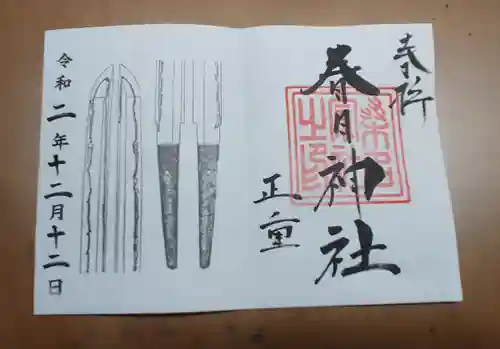 奉拝
春日神社
正重
令和二年十二月十二日